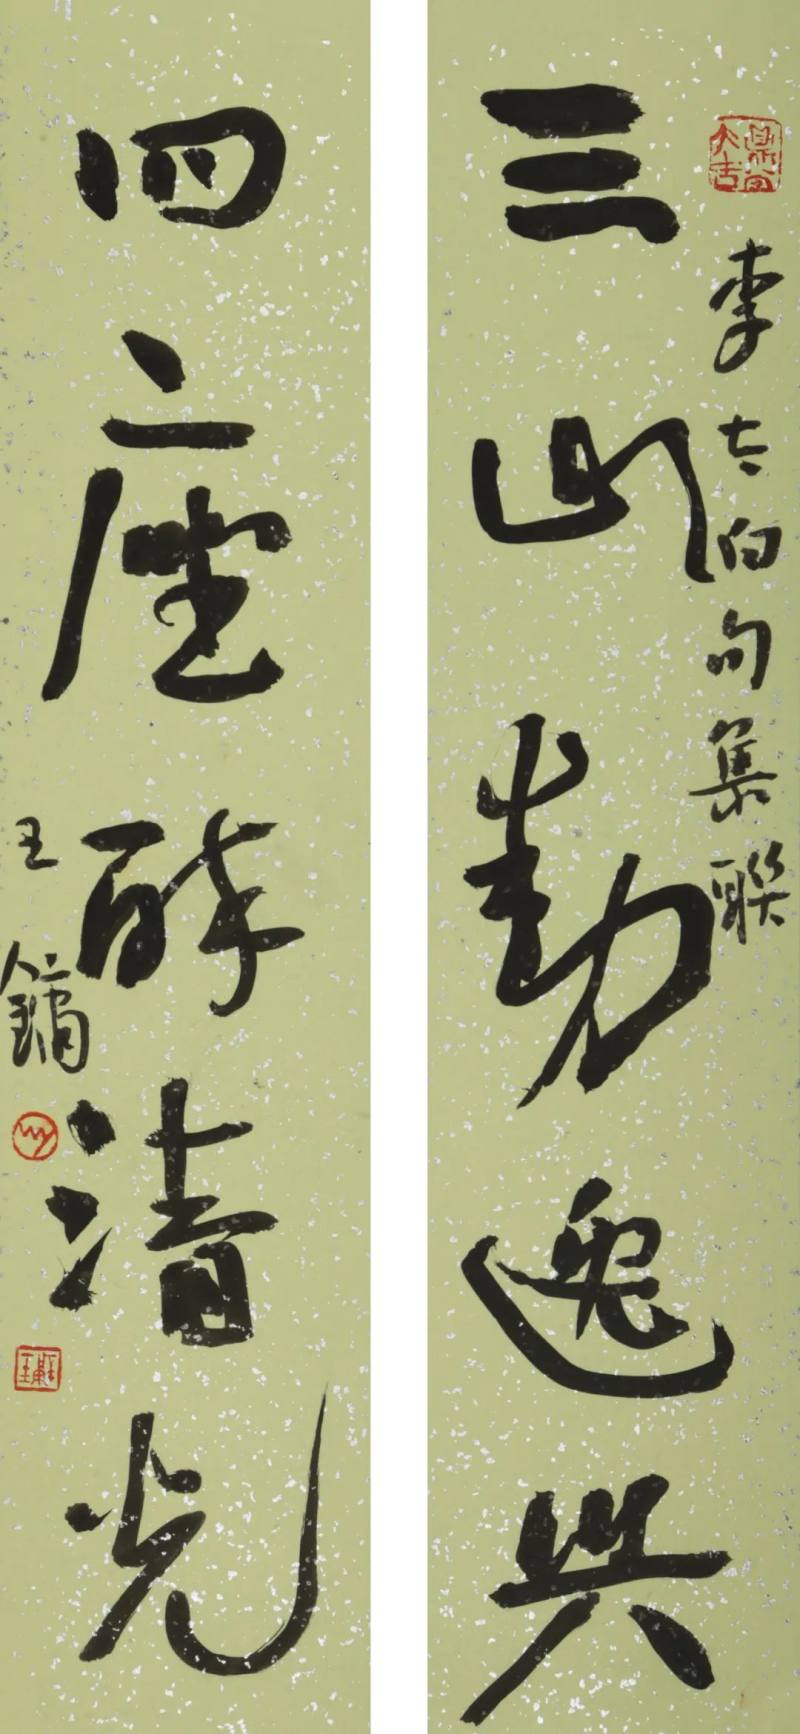 李太白句集联
三山動逸興
四座醉清光
王镛